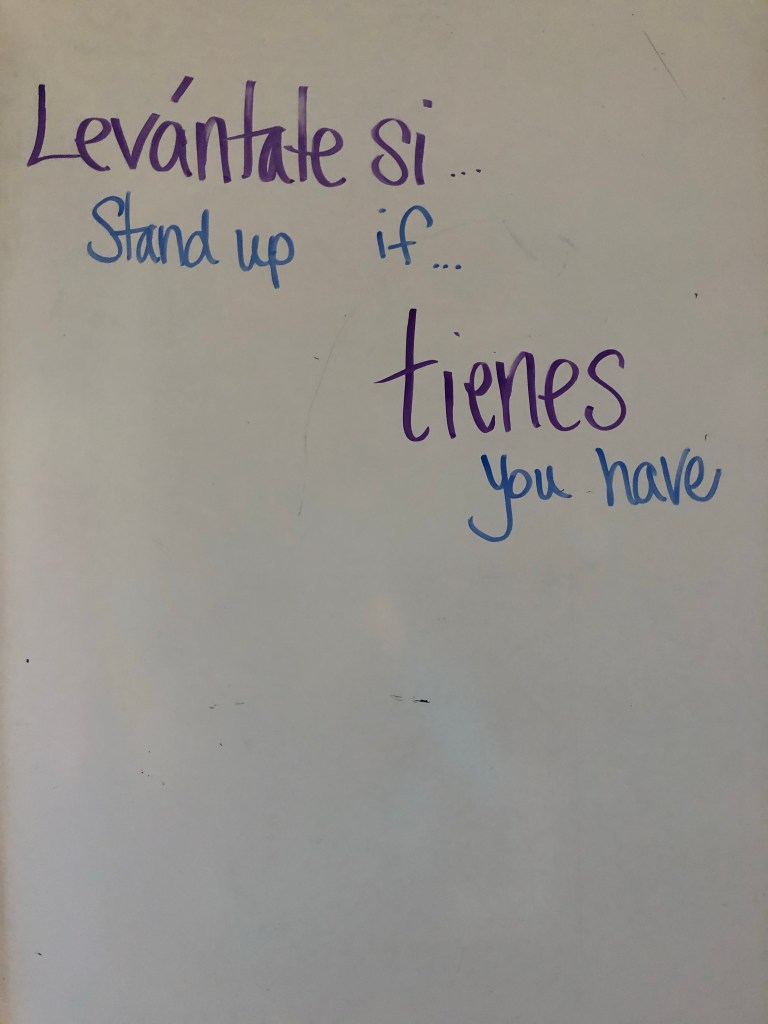 Levántate si...
Stand up if...
tienes
you have